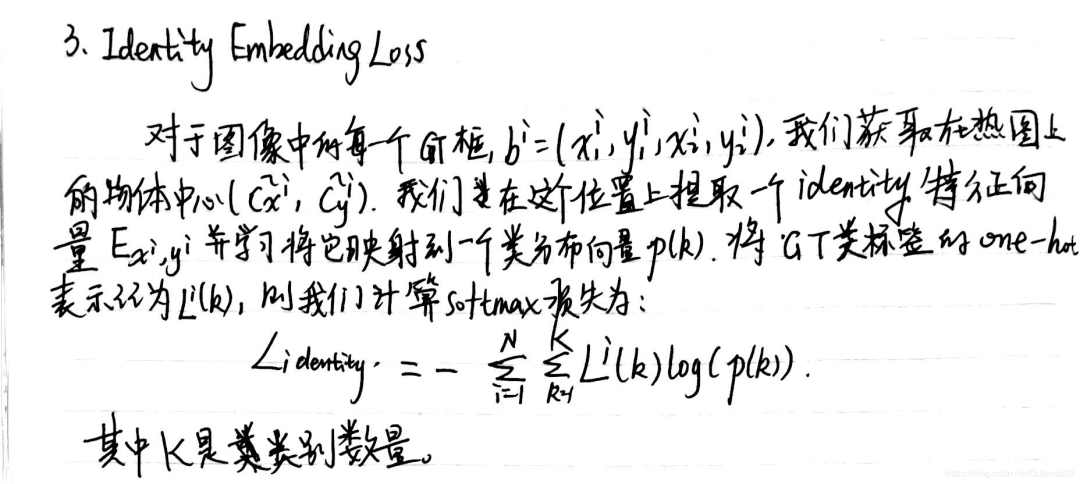 3. Identity Embedding Loss
对于图像中的每一个GT框, b^i=(x_1^i, y_1^i, x_2^i, y_2^i), 我们获取在热图上
的物体中心(\tilde{c}_x^i, \tilde{c}_y^i). 我们在这个位置上提取一个identity特征向
量 E_{x^i,y^i} 并学习将它映射到一个类分布向量p(k). 将GT类标签的one-hot
表示记为L^i(k), 则我们计算softmax损失为:
L_{identity} = - \sum_{i=1}^{N} \sum_{k=1}^{K} L^i(k) log(p(k)).
其中K是类别数量。
https://blog.csdn.net/DJames23